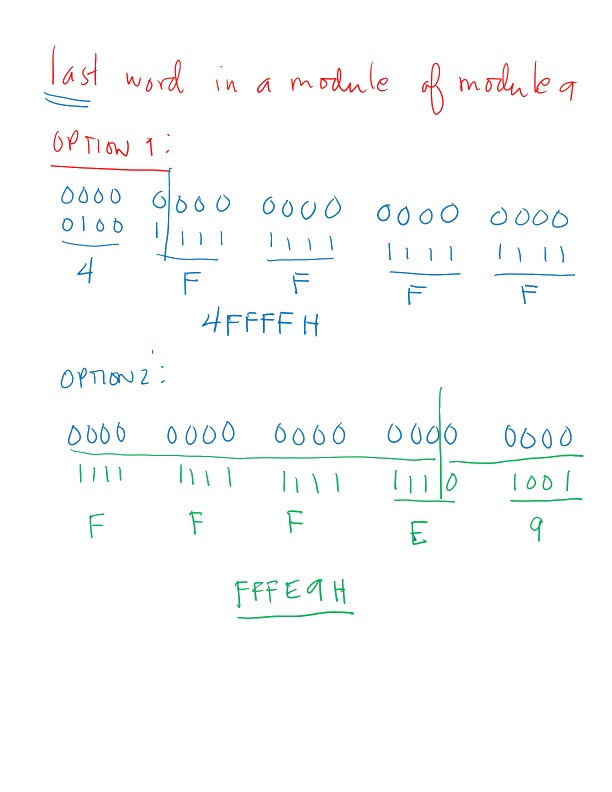 last word in a module of module 9
OPTION 1:
0000 0000 0000 0000 0000
0100 1111 1111 1111 1111
4 F F F F
4FFFFH
OPTION 2:
0000 0000 0000 0000 0000
1111 1111 1111 1110 1001
F F F E 9
FFFE9H